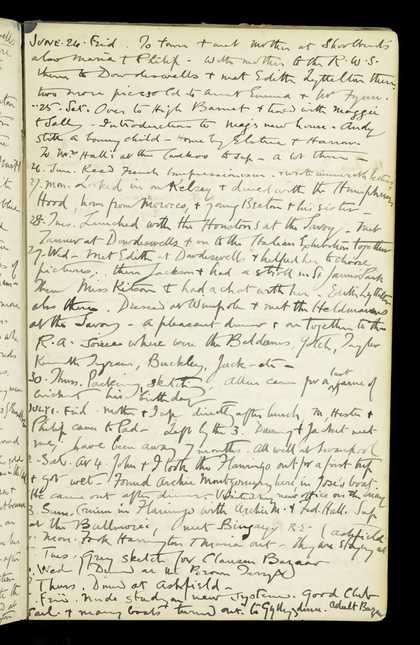 JUNE. 24. Frid. To town & met mother at Shoolbred's
also Maria & Philip - With mother to the R.W.S.
then to Dowdeswells & met Edith Lyttelton there
two more pics sold to Aunt Emma & Mr Fynn.
25. Sat. Over to High Barnet & tea'd with Maggie
& Sally - Introductions to Meg's new house. Andy
still a bonny child - home by Elstree & Harrow.
To Mrs Hall's at the Cuckoo to sup - a lot there -
26. Sun. Read French Impressionism -
27. Mon. Looked in on Kelsey & dined with the Humphreys
Hood, home from Morocco, & young Beeton & his sister -
28. Tues. Lunched with the Houstons at the Savoy - met
Tanner at Dowdeswells & on to the Italian Exhibition together
29. Wed - Met Edith at Dowdeswells & helped her to choose
pictures. then Jackson & had a stroll in St James Park
then Miss Kitson & had a chat with her. Edith Lyttelton
also there. Dressed at Wimpole & met the
at the Savoy - a pleasant dinner & on together to the
R.A. Soiree where were the Beldams, Gotch, Taylor
Kenneth Ingram, Buckley, Jack - etc -
30. Thurs. Packing sketches Allen came for a last game of
cricket his birthday
JULY 1. Frid. Mother & I up directly after lunch, M. Hester &
Philip came to Pad - Left by the 3. Danny & Jacket met
me, have been away 7 months. All well at
2. Sat. At 4. John & I took the Flamingo out for a first trip
& got wet - Found Archie Montgomery here in Jose's boat.
He came out after dinner. Visited my new office on the way
3. Sun. Cruise in Flamingo with Archie M. & Fed. Hall. Sup
at the Ballmoral, met Bingay R.E. - (Ashfield
Mon. Took Harrington & Maria out - they are staying at
Tues. Grey sketch for Clausen Bazaar
Wed. Dined at the Brown
Thurs. Dined at Ashfield -
Frid. Nude study on new system. Good Club
Sail & many boats turned out. to Gyllyngdune. Adult Bazr